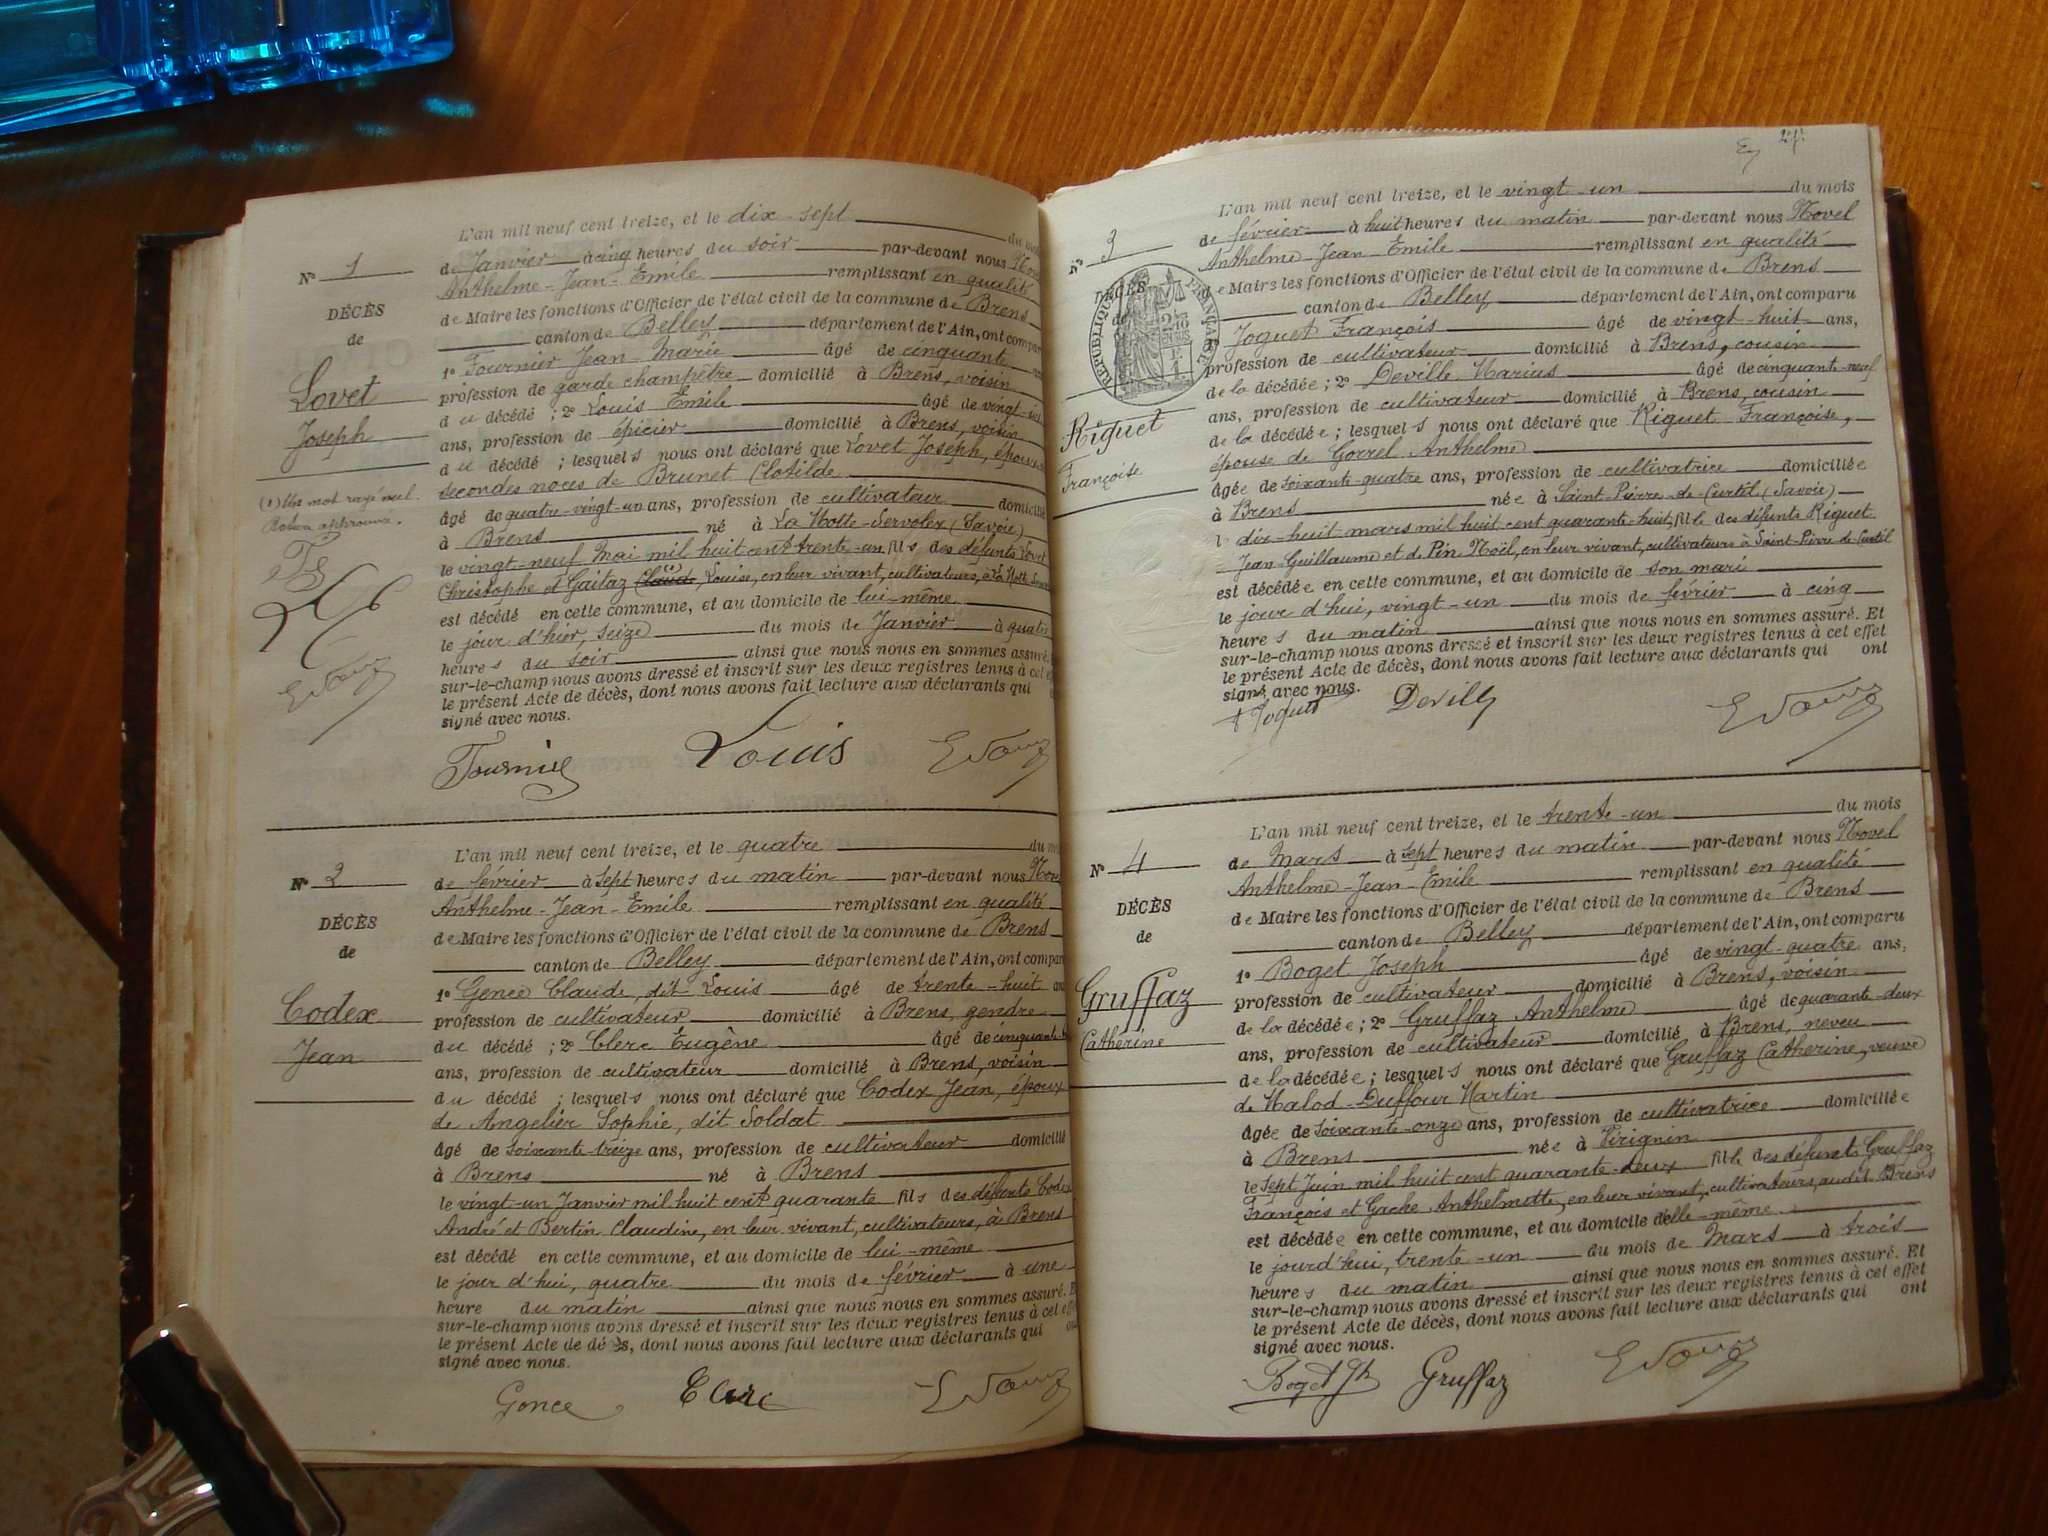 L'an mil neuf cent treize, et le dix-sept du
N° 1
de Janvier à cinq heures du soir par-devant nous
Anthelme-Jean-Emile remplissant en qualité
DÉCÈS
de Maire les fonctions d'Officier de l'état civil de la commune de Brens
de
canton de Belley département de l'Ain, ont
1° Fournier Jean-Marie âgé de cinquante
Lovet
profession de garde champêtre domicilié à Brens, voisin
Joseph
du décédé ; 2° Louis Emile âgé de vingt
ans, profession de épicier domicilié à Brens, voisin
du décédé ; lesquels nous ont déclaré que Lovet Joseph,
secondes noces de Brunet Clotilde
(1) Un mot rayé nul.
âgé de quatre-vingt-un ans, profession de cultivateur domicilié
approuvé.
à Brens né à La Motte-Servolex (Savoie)
le vingt-neuf Mai mil huit cent trente-un fils des défunts Lovet
Christophe et Gaitaz Claude (1), Louise, en leur vivant, cultivateurs, à La Motte
est décédé en cette commune, et au domicile de lui-même
le jour d'hier, seize du mois de Janvier à quatre
heures du soir ainsi que nous nous en sommes assuré.
sur-le-champ nous avons dressé et inscrit sur les deux registres tenus à cet
le présent Acte de décès, dont nous avons fait lecture aux déclarants qui
signé avec nous.
Fournier Louis
L'an mil neuf cent treize, et le quatre du
N° 2
de février à sept heures du matin par-devant nous
Anthelme-Jean-Emile remplissant en qualité
DÉCÈS
de Maire les fonctions d'Officier de l'état civil de la commune de Brens
de
canton de Belley département de l'Ain, ont
1° Gence Claude, dit Louis âgé de trente-huit
Codex
profession de cultivateur domicilié à Brens, gendre
Jean
du décédé ; 2° Clerc Eugène âgé de
ans, profession de cultivateur domicilié à Brens, voisin
du décédé ; lesquels nous ont déclaré que Codex Jean, époux
de Angelier Sophie, dit Soldat
âgé de soixante-treize ans, profession de cultivateur domicilié
à Brens né à Brens
le vingt-un Janvier mil huit cent quarante fils des défunts Codex
André et Bertin Claudine, en leur vivant, cultivateurs, à Brens
est décédé en cette commune, et au domicile de lui-même
le jour d'hui, quatre du mois de février à une
heure du matin ainsi que nous nous en sommes assuré.
sur-le-champ nous avons dressé et inscrit sur les deux registres tenus à cet
le présent Acte de décès, dont nous avons fait lecture aux déclarants qui
signé avec nous.
Gence Clerc
L'an mil neuf cent treize, et le vingt-un du mois
N° 3
de février à huit heures du matin par-devant nous Novel
Anthelme-Jean-Emile remplissant en qualité
DÉCÈS
de Maire les fonctions d'Officier de l'état civil de la commune de Brens
de
canton de Belley département de l'Ain, ont comparu
RÉPUBLIQUE FRANÇAISE
Joguet François âgé de vingt-huit ans,
profession de cultivateur domicilié à Brens, cousin
de la décédée ; 2° Deville Marius âgé de cinquante-neuf
ans, profession de cultivateur domicilié à Brens, cousin
Riguet
de la décédée ; lesquels nous ont déclaré que Riguet Françoise,
Françoise
épouse de Gorrel Anthelme
âgée de soixante-quatre ans, profession de cultivatrice domiciliée
à Brens née à Saint-Pierre-de-Curtil (Savoie)
le dix-huit mars mil huit cent quarante-huit, fille des défunts Riguet
Jean Guillaume et de Pin Noël, en leur vivant, cultivateurs à Saint-Pierre de Curtil
est décédée en cette commune, et au domicile de son mari
le jour d'hui, vingt-un du mois de février à cinq
heures du matin ainsi que nous nous en sommes assuré. Et
sur-le-champ nous avons dressé et inscrit sur les deux registres tenus à cet effet
le présent Acte de décès, dont nous avons fait lecture aux déclarants qui ont
signé avec nous.
Joguet Deville
L'an mil neuf cent treize, et le trente-un du mois
N° 4
de Mars à sept heures du matin par-devant nous Novel
Anthelme-Jean-Emile remplissant en qualité
DÉCÈS
de Maire les fonctions d'Officier de l'état civil de la commune de Brens
de
canton de Belley département de l'Ain, ont comparu
1° Boget Joseph âgé de vingt-quatre ans,
Gruffaz
profession de cultivateur domicilié à Brens, voisin
Catherine
de la décédée ; 2° Gruffaz Anthelme âgé de quarante-deux
ans, profession de cultivateur domicilié à Brens, neveu
de la décédée ; lesquels nous ont déclaré que Gruffaz Catherine, veuve
de Malod-Duffour Martin
âgée de soixante-onze ans, profession de cultivatrice domiciliée
à Brens née à Pirignin
le sept Juin mil huit cent quarante-deux fille des défunts Gruffaz
François et Gache Anthelmette, en leur vivant, cultivateurs, audit Brens
est décédée en cette commune, et au domicile d'elle-même
le jourd'hui, trente-un du mois de Mars à trois
heures du matin ainsi que nous nous en sommes assuré. Et
sur-le-champ nous avons dressé et inscrit sur les deux registres tenus à cet effet
le présent Acte de décès, dont nous avons fait lecture aux déclarants qui ont
signé avec nous.
Boget Jh Gruffaz